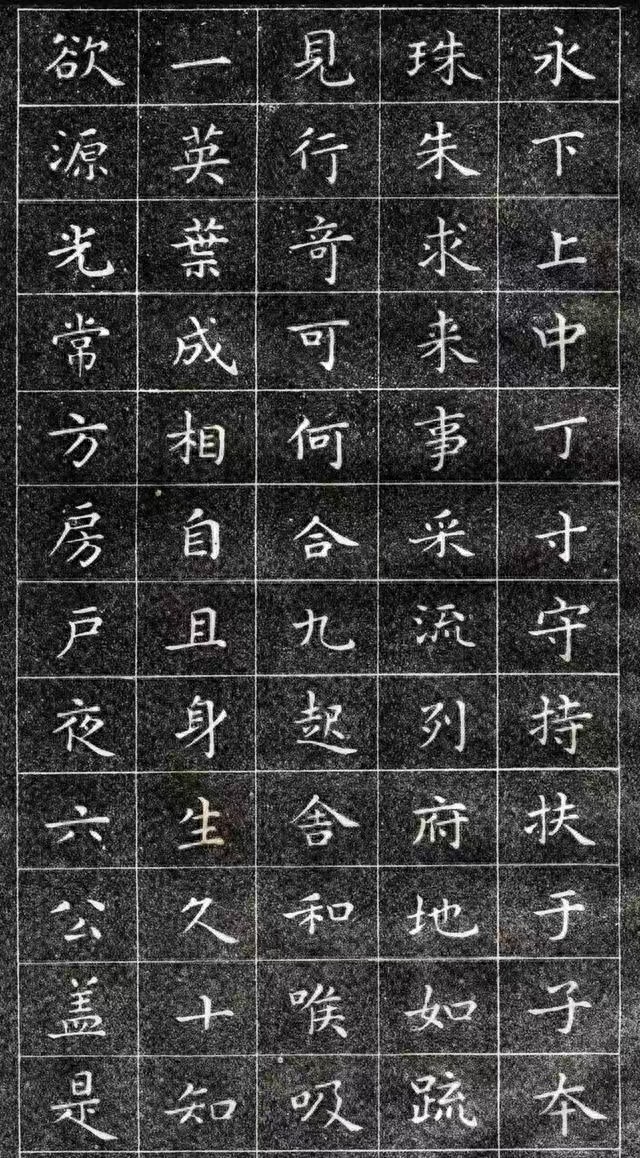 永下上中丁寸守持扶于子本
珠朱求来事采流列府地如䟽
見行竒可何合九起舎和喉吸
一英葉成相自且身生久十知
欲源光常方房戸夜六公盖是